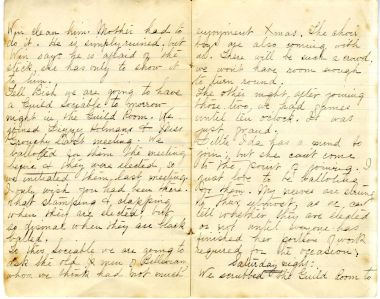 Win clean him. Mother had to
do it. He is simply ruined, but
Win says he is afraid of the
stick she has only to show it
to him.
Tell Bish we are going to have
a Guild Sociable to-morrow
night in the Guild Room. We
joined & Miss
last meeting. We
balloted for them the meeting
before as they were elected so
we initiated them last meeting.
I only wish you had been there.
that stamping & clapping
when they are elected, but
so dismal when they are black
balled.
To this Sociable we are going to
ask the old & men
whom we think had not much
enjoyment Xmas. The choir
boys are also coming with
us. There will be such a crowd,
we won't have room enough
to turn round.
The other night, after joining
those two, we had games
until ten o'clock. It was
just grand.
Ida has a mind to
join, but she can't come
to the point of joining. I
just love to be balloting
for them. My nerves are strung
to their utmost, as we can't
tell whether they are elected
or not until everyone has
finished her portion of work
required for the occasion.
Saturday night.
We scrubbed the Guild Room to